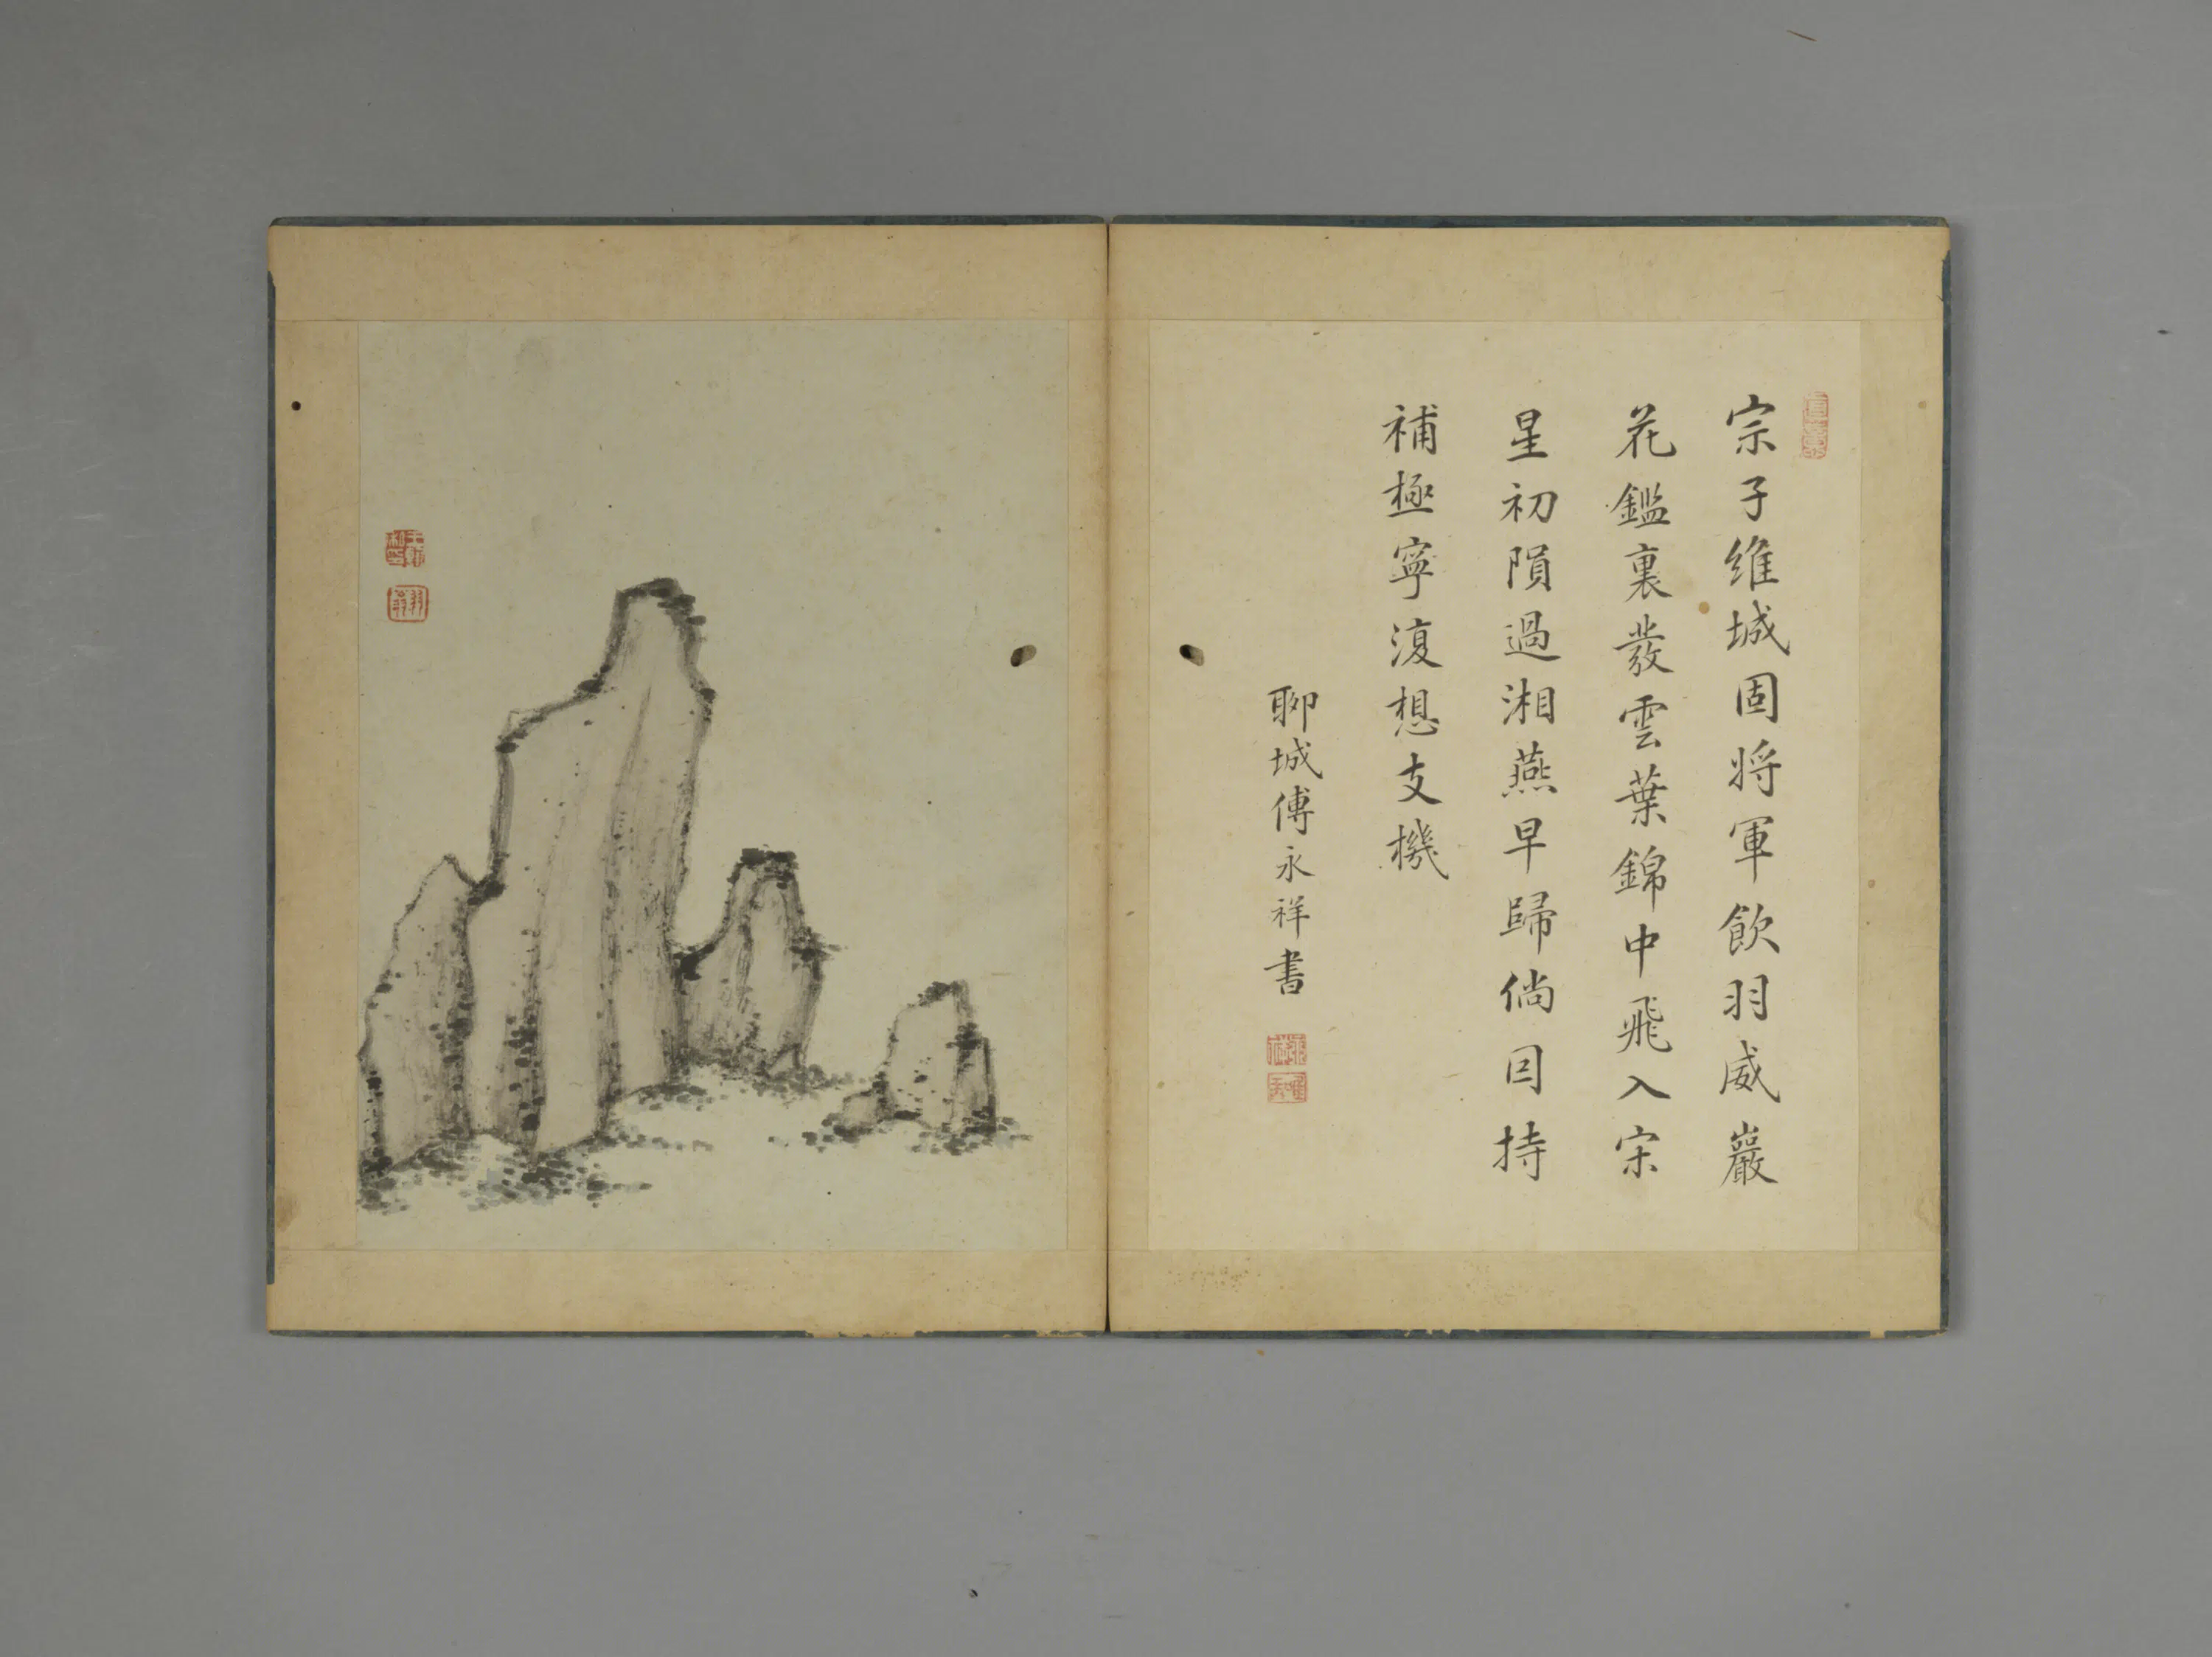 宗子維城固將軍飲羽威巖
花鑑裏發雲葉錦中飛入宋
星初隕過湘燕早歸倘因持
補極寧復想支機
聊城傅永祥書